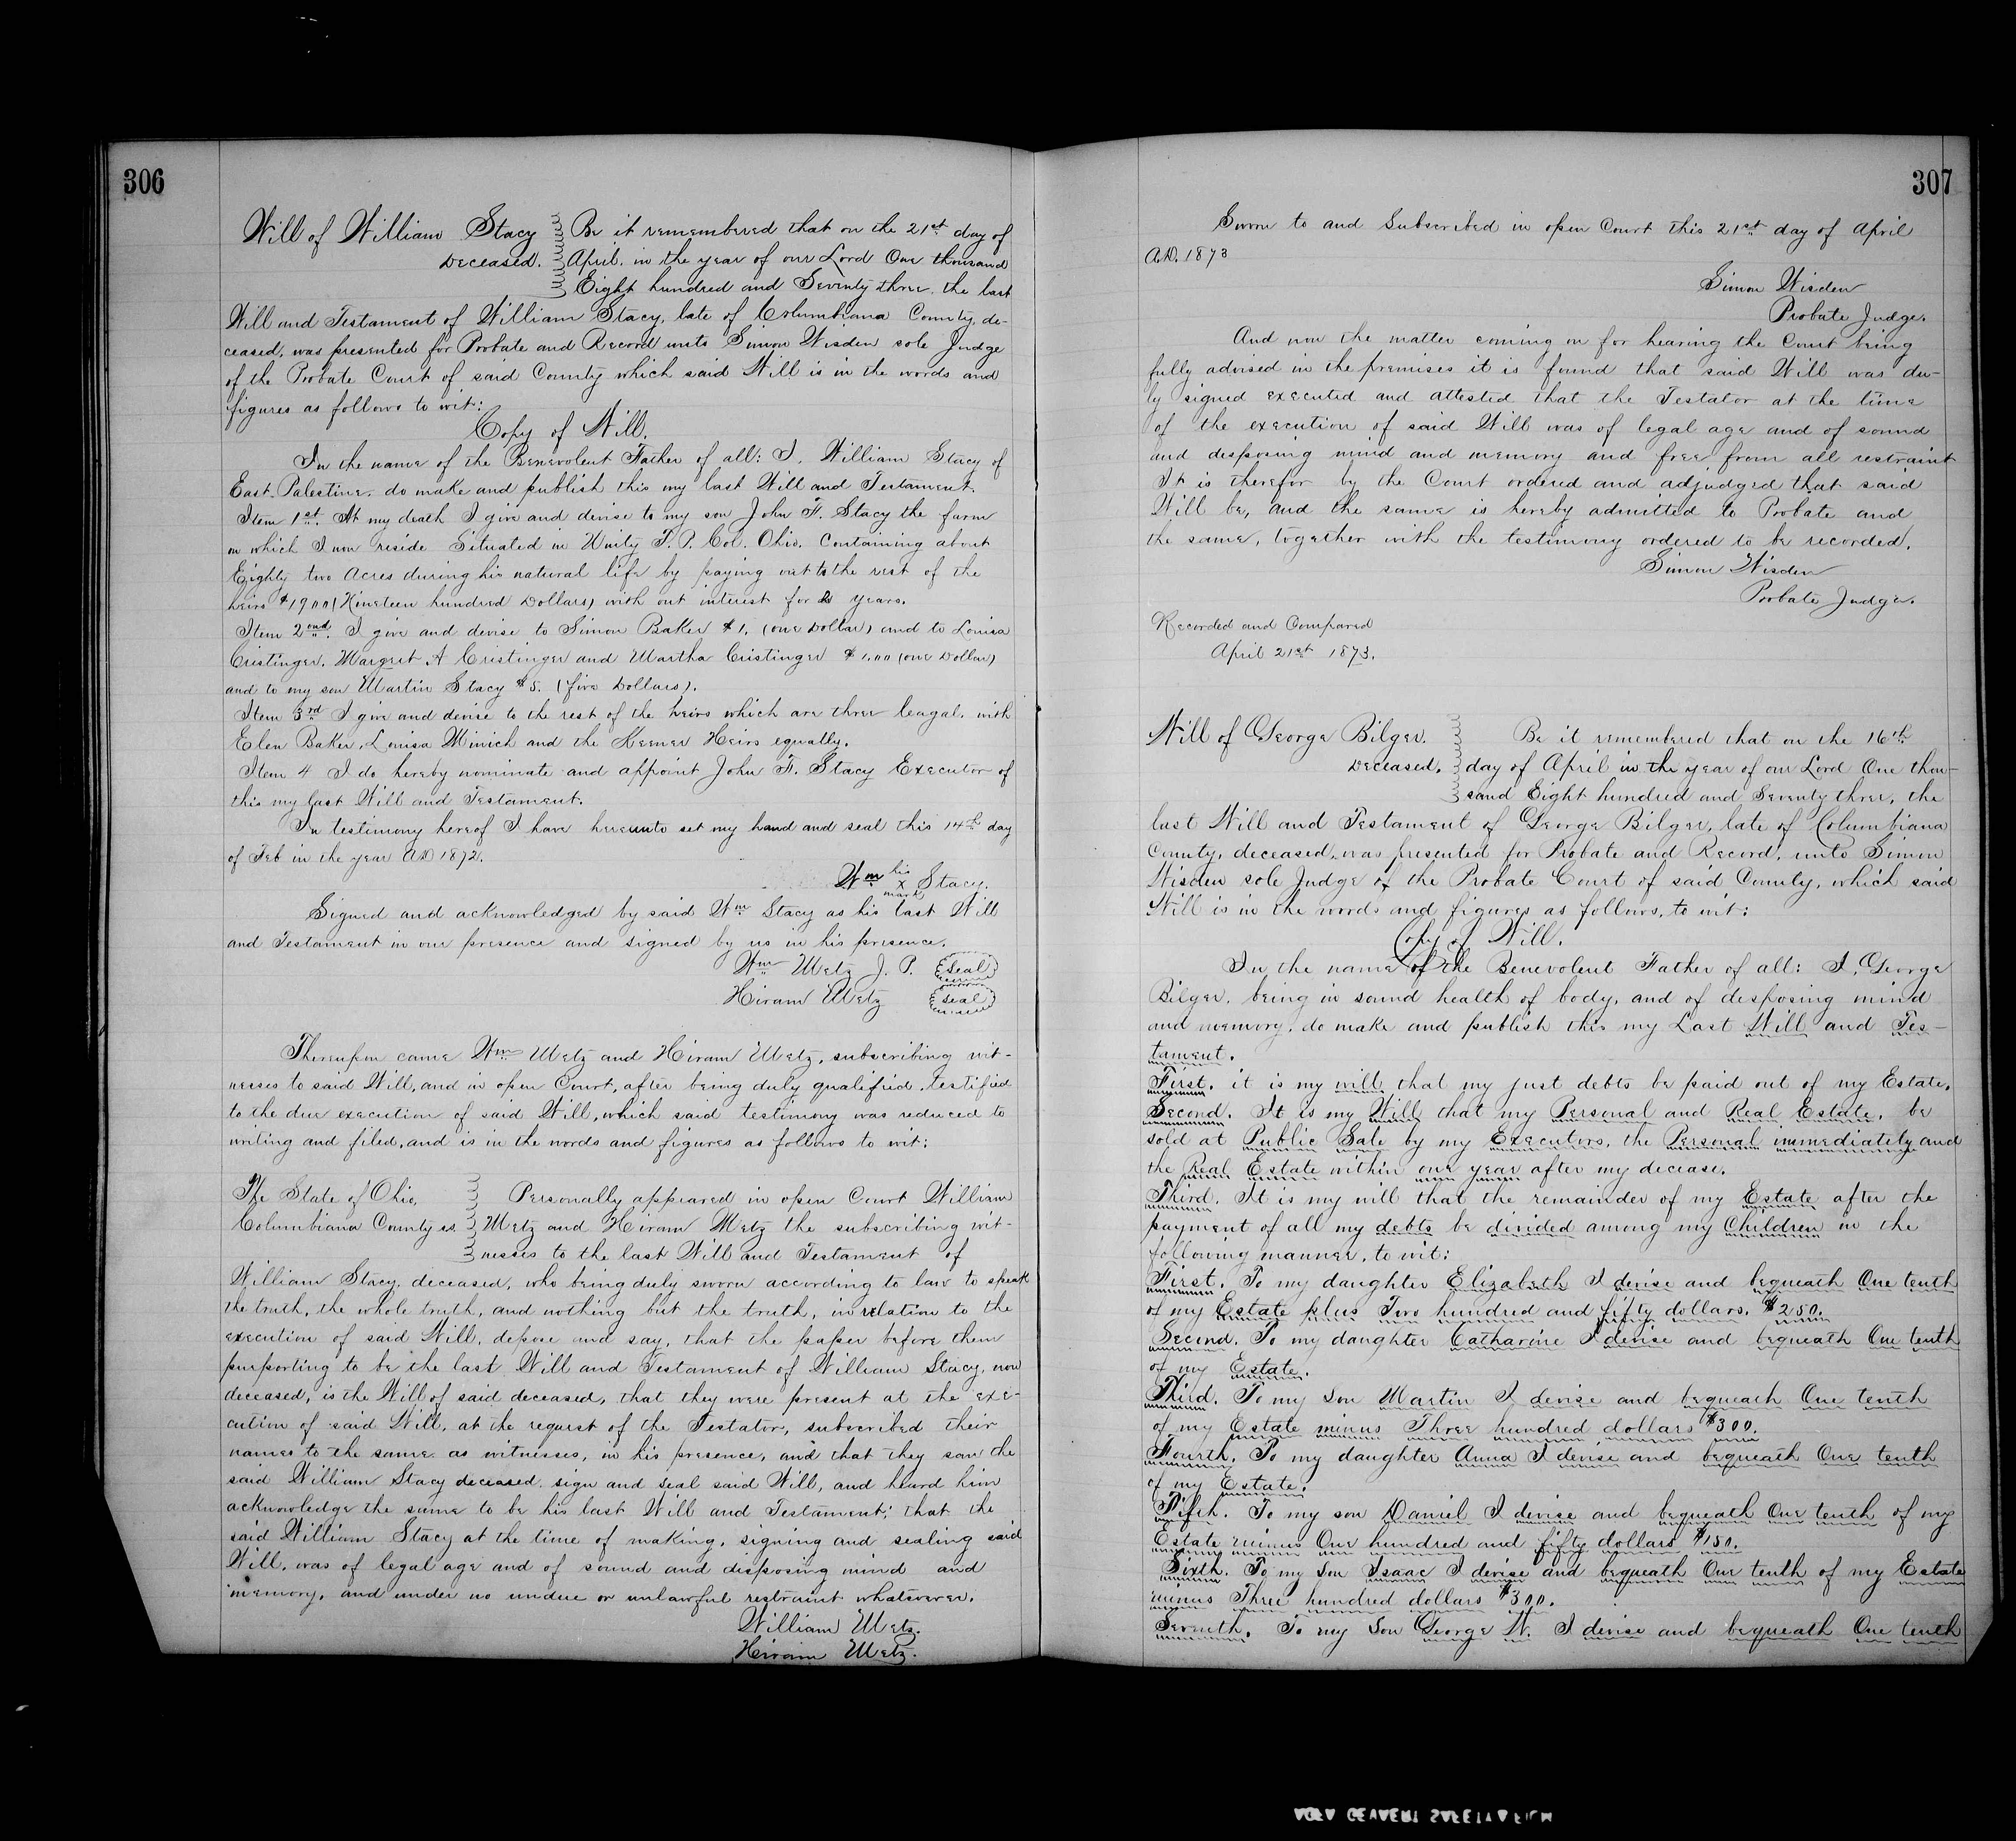 306
Will of William Stacy Be it remembered that on the 21st day of
Deceased. April, in the year of our Lord One thousand
Eight hundred and Seventy three, the last
Will and Testament of William Stacy, late of Columbiana County, de-
ceased, was presented for Probate and Record unto Simon Wisden sole Judge
of the Probate Court of said County which said Will is in the words and
figures as follows to wit:
Copy of Will.
In the name of the Benevolent Father of all: I, William Stacy of
East Palestine, do make and publish this my last Will and Testament.
Item 1st. At my death I give and devise to my son John F. Stacy the farm
on which I now reside Situated in Unity T.P. Col. Ohio. Containing about
Eighty two Acres during his natural life by paying out to the rest of the
heirs $1900 (Nineteen hundred Dollars) with out interest for 2 years.
Item 2ond. I give and devise to Simon Baker $1. (one Dollar) and to Louisa
Cristinger, Margret A Cristinger and Martha Cristinger $1.00 (one Dollar)
and to my son Martin Stacy $5. (five Dollars).
Item 3rd I give and devise to the rest of the heirs which are three leagal, with
Elen Baker, Louisa Minich and the Keener Heirs equally.
Item 4 I do hereby nominate and appoint John F. Stacy Executor of
this my last Will and Testament.
In testimony hereof I have hereunto set my hand and seal this 14th day
of Feb in the year AD 1872.
his
Wm x Stacy.
mark
Signed and acknowledged by said Wm Stacy as his last Will
and Testament in our presence and signed by us in his presence.
Wm Metz J. P. Seal
Hiram Metz Seal
Thereupon came Wm Metz and Hiram Metz, subscribing wit-
nesses to said Will, and in open Court, after being duly qualified, testified
to the due execution of said Will, which said testimony was reduced to
writing and filed, and is in the words and figures as follows to wit:
The State of Ohio, Personally appeared in open Court William
Columbiana County ss. Metz and Hiram Metz the subscribing wit-
nesses to the last Will and Testament of
William Stacy, deceased, who being duly sworn according to law to speak
the truth, the whole truth, and nothing but the truth, in relation to the
execution of said Will, depose and say, that the paper before them
purporting to be the last Will and Testament of William Stacy, now
deceased, is the Will of said deceased, that they were present at the exe-
cution of said Will, at the request of the Testator, subscribed their
names to the same as witnesses, in his presence, and that they saw the
said William Stacy deceased, sign and seal said Will, and heard him
acknowledge the same to be his last Will and Testament; that the
said William Stacy at the time of making, signing and sealing said
Will, was of legal age and of sound and disposing mind and
memory, and under no undue or unlawful restraint whatsoever.
William Metz.
Hiram Metz.
307
Sworn to and Subscribed in open Court this 21st day of April
A.D. 1873
Simon Wisden
Probate Judge.
And now the matter coming on for hearing the Court being
fully advised in the premises it is found that said Will was du-
ly signed executed and attested that the Testator at the time
of the execution of said Will was of legal age and of sound
and disposing mind and memory and free from all restraint
It is therefor by the Court ordered and adjudged that said
Will be, and the same is hereby admitted to Probate and
the same, together with the testimony ordered to be recorded.
Simon Wisden
Probate Judge.
Recorded and Compared
April 21st 1873.
Will of George Bilger. Be it remembered that on the 16th
Deceased. day of April in the year of our Lord One thou-
sand Eight hundred and Seventy three, the
last Will and Testament of George Bilger, late of Columbiana
County, deceased, was presented for Probate and Record, unto Simon
Wisden sole Judge of the Probate Court of said County, which said
Will is in the words and figures as follows, to wit:
Copy of Will.
In the name of the Benevolent Father of all: I, George
Bilger, being in sound health of body, and of disposing mind
and memory, do make and publish this my Last Will and Tes-
tament.
First. it is my will that my just debts be paid out of my Estate.
Second. It is my Will that my Personal and Real Estate, be
sold at Public Sale by my Executors, the Personal immediately and
the Real Estate within one year after my decease.
Third. It is my will that the remainder of my Estate after the
payment of all my debts be divided among my Children in the
following manner, to wit:
First. To my daughter Elizabeth I devise and bequeath One tenth
of my Estate plus Two hundred and fifty dollars. $250.
Second. To my daughter Catharine I devise and bequeath One tenth
of my Estate.
Third. To my son Martin I devise and bequeath One tenth
of my Estate minus Three hundred dollars $300.
Fourth. To my daughter Anna I devise and bequeath One tenth
of my Estate.
Fifth. To my son Daniel I devise and bequeath One tenth of my
Estate minus One hundred and fifty dollars $150.
Sixth. To my Son Isaac I devise and bequeath One tenth of my Estate
minus Three hundred dollars $300.
Seventh. To my Son George W. I devise and bequeath One tenth